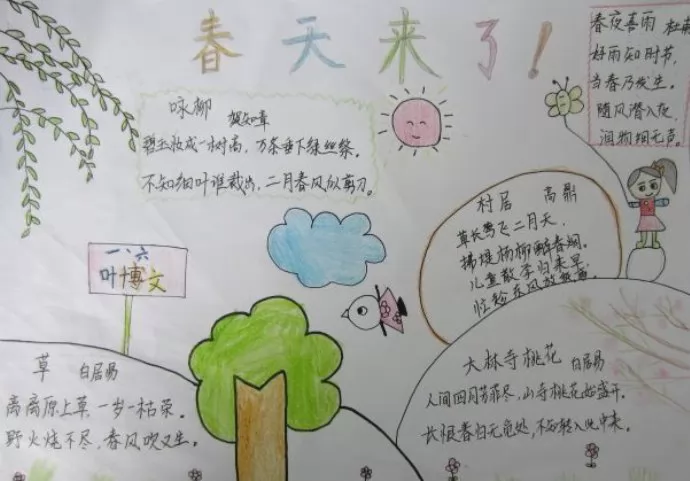 春天来了!
咏柳 贺知章
碧玉妆成一树高,万条垂下绿丝绦。
不知细叶谁裁出,二月春风似剪刀。
春夜喜雨 杜甫
好雨知时节,
当春乃发生。
随风潜入夜,
润物细无声。
村居 高鼎
草长莺飞二月天,
拂堤杨柳醉春烟。
儿童散学归来早,
忙趁东风放纸鸢。
一、六
叶博文
草 白居易
离离原上草,一岁一枯荣。
野火烧不尽,春风吹又生。
大林寺桃花 白居易
人间四月芳菲尽,山寺桃花始盛开。
长恨春归无觅处,不知转入此中来。